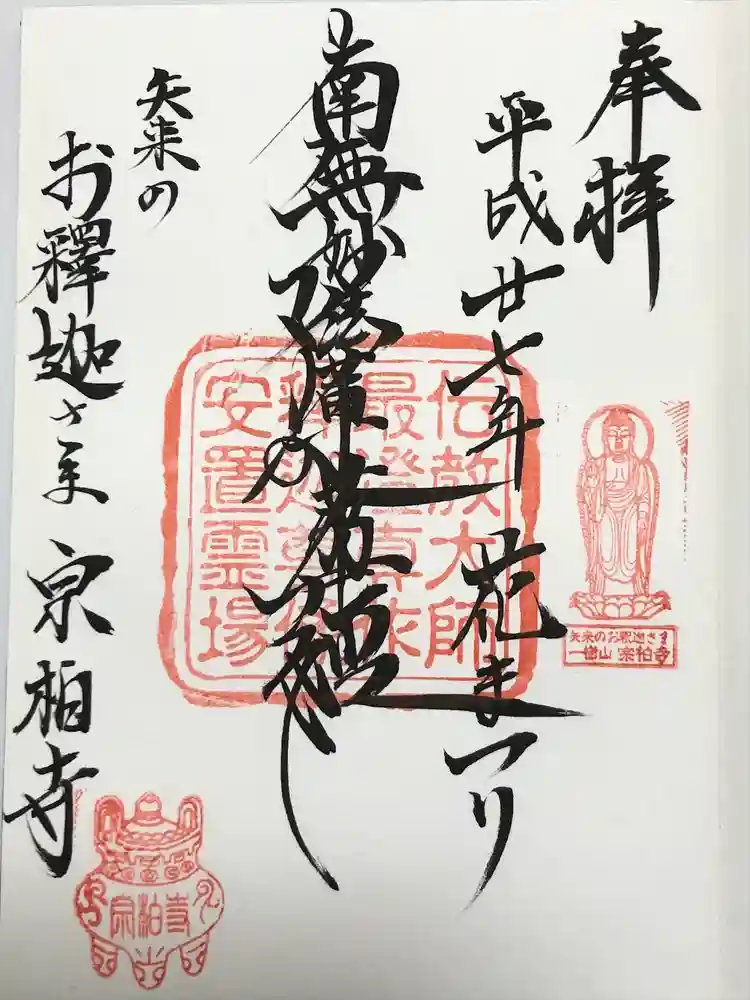 奉拝
平成廿七年 花まつり
南無妙法蓮華経
矢来の
お釋迦さま 宗柏寺
伝教大師
最澄尊作
釈迦尊像
安置霊場
矢来のお釈迦さま
一樹山 宗柏寺
宗柏寺